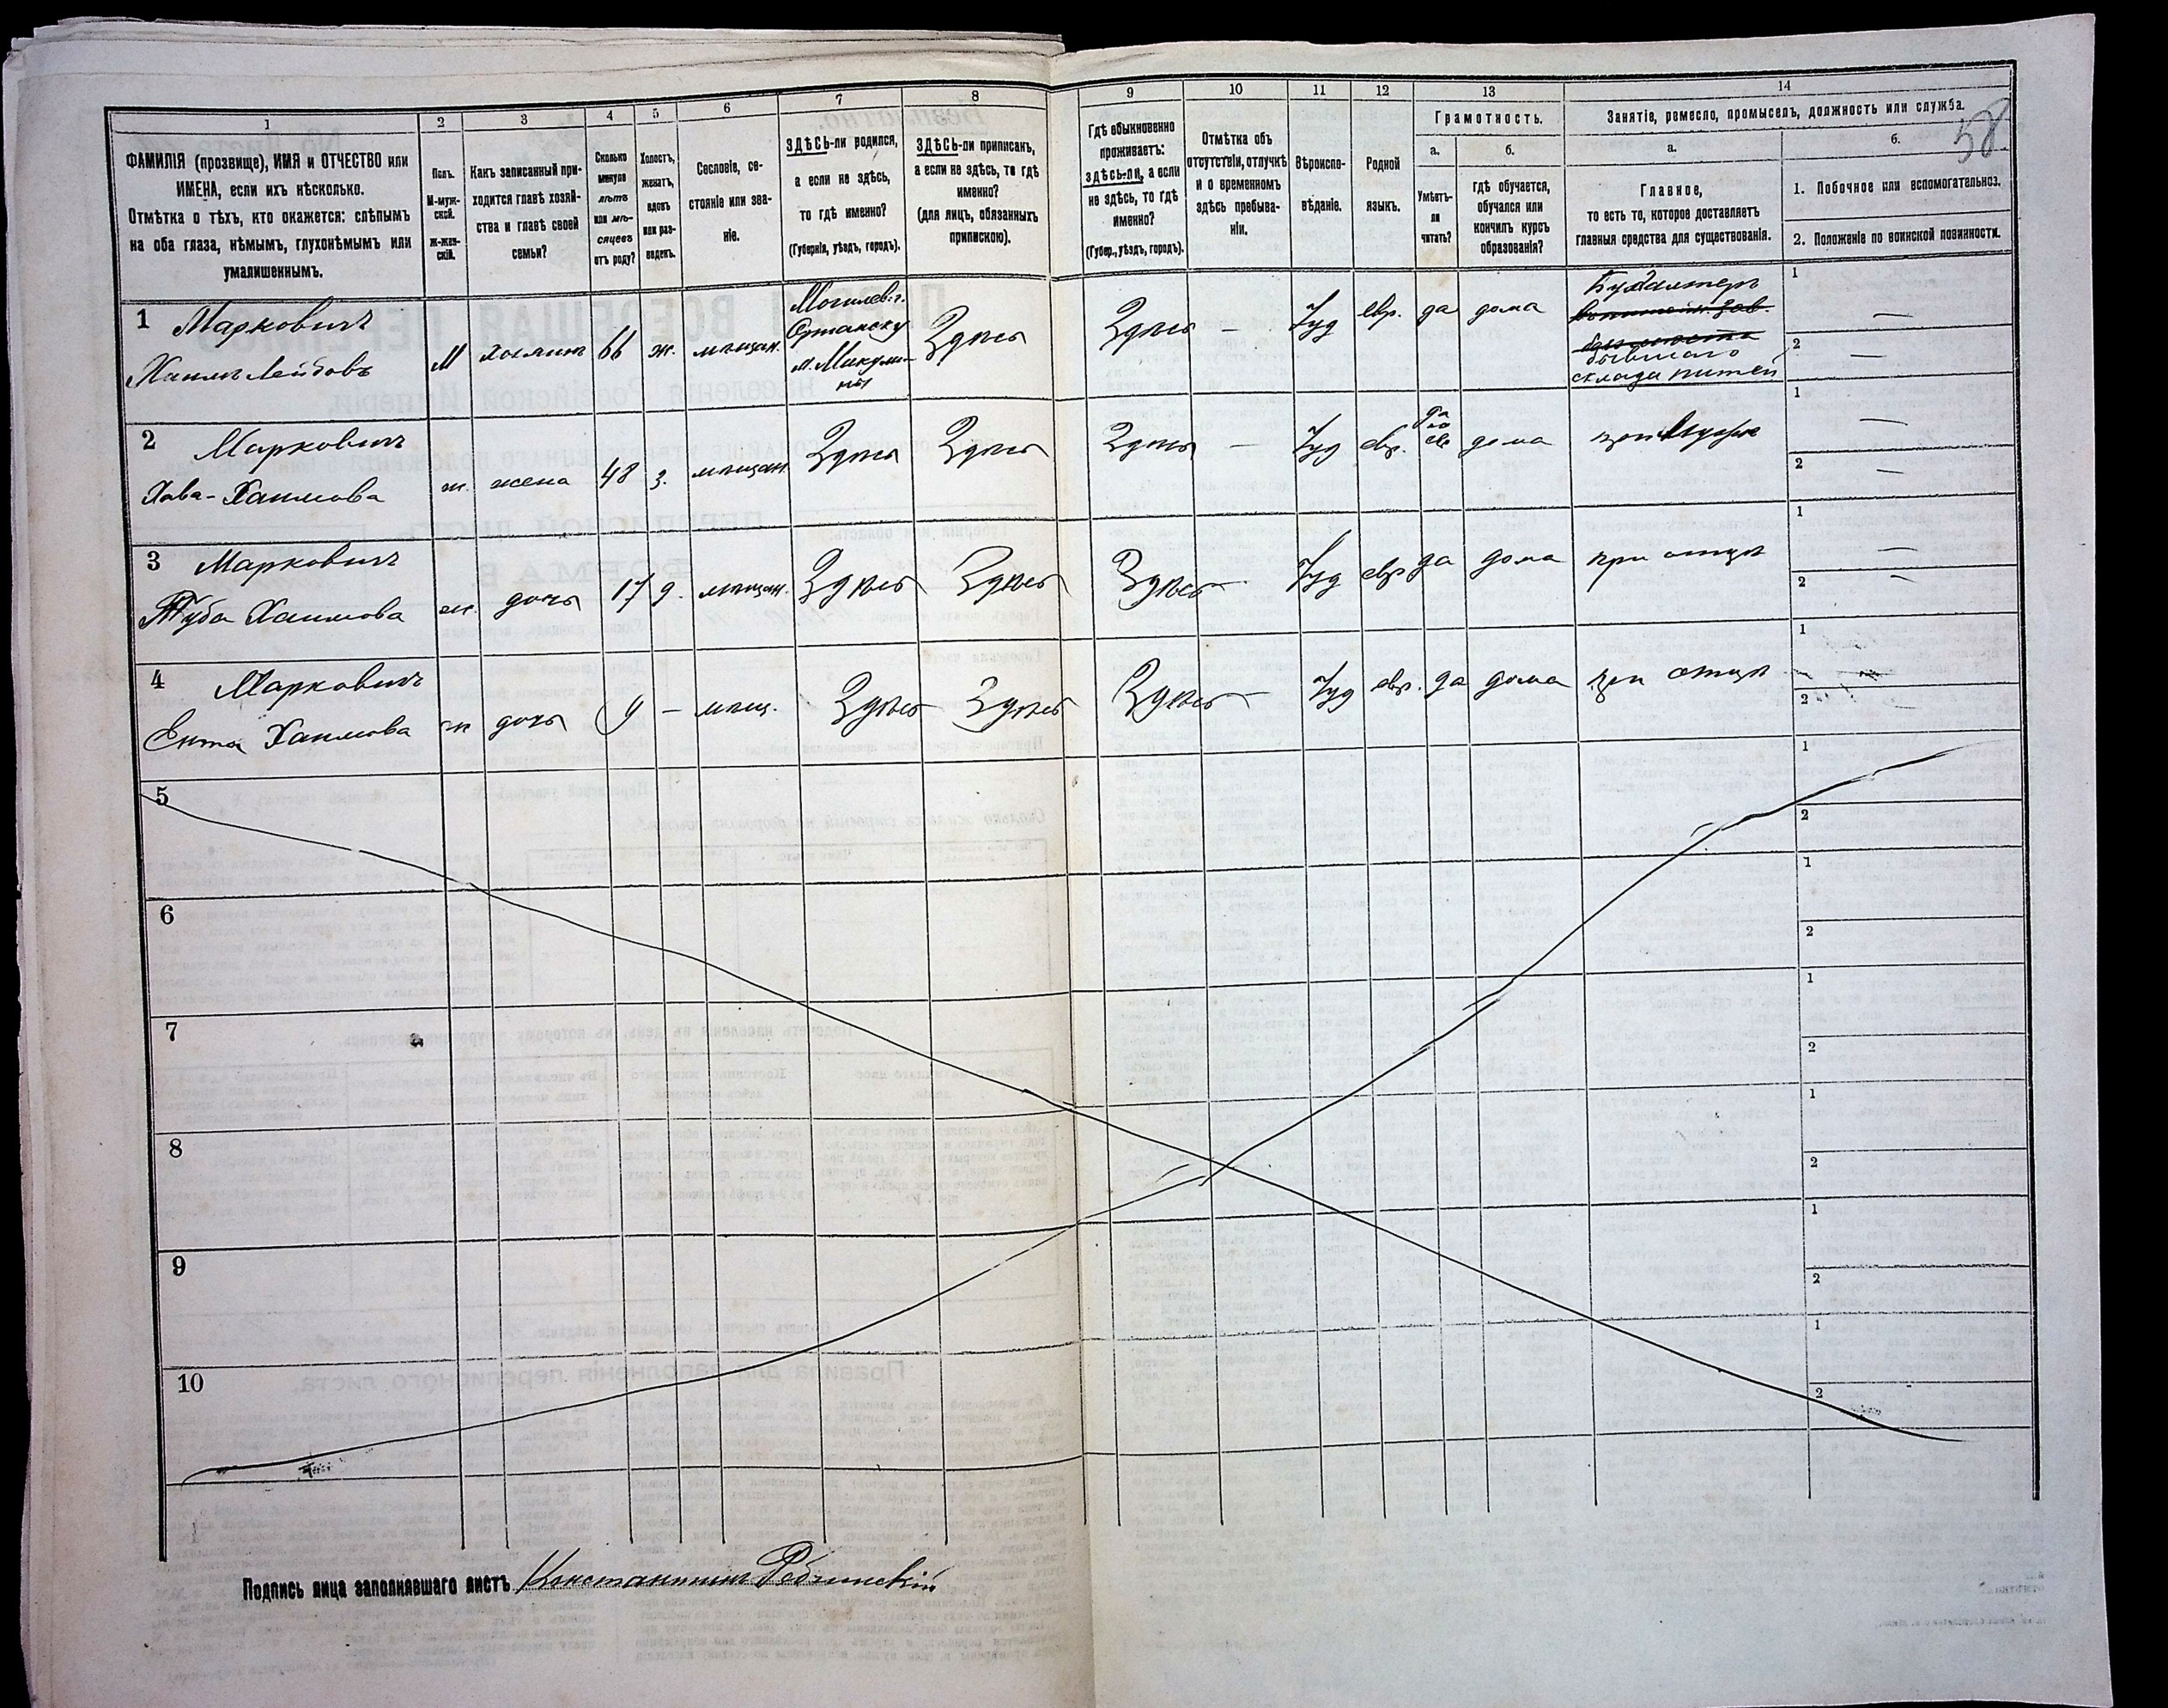 58
1
2
3
4
5
6
7
8
9
10
11
12
13
14
ФАМИЛІЯ (прозвище), ИМЯ и ОТЧЕСТВО или
ИМЕНА, если ихъ нѣсколько.
Отмѣтка о тѣхъ, кто окажется: слѣпымъ
на оба глаза, нѣмымъ, глухонѣмымъ или
умалишеннымъ.
Полъ.
М-муж-
ской.
Ж-жен-
скій.
Какъ записанный при-
ходится главѣ хозяй-
ства и главѣ своей
семьи?
Сколько
минуло
лѣтъ
или мѣ-
сяцевъ
отъ роду?
Холостъ,
женатъ,
вдовъ
или раз-
веденъ.
Сословіе, со-
стояніе или зва-
ніе.
ЗДѢСЬ-ли родился,
а если не здѣсь,
то гдѣ именно?
(Губернія, уѣздъ, городъ).
ЗДѢСЬ-ли приписанъ,
а если не здѣсь, то гдѣ
именно?
(для лицъ, обязанныхъ
припискою).
Гдѣ обыкновенно
проживаетъ:
здѣсь-ли, а если
не здѣсь, то гдѣ
именно?
(Губер., уѣздъ, городъ).
Отмѣтка объ
отсутствіи, отлучкѣ
и о временномъ
здѣсь пребыва-
ніи.
Вѣроиспо-
вѣданіе.
Родной
языкъ.
Грамотность.
а.
Умѣетъ-
ли
читать?
б.
гдѣ обучается,
обучался или
кончилъ курсъ
образованія?
Занятіе, ремесло, промыселъ, должность или служба.
а.
Главное,
то есть то, которое доставляетъ
главныя средства для существованія.
б.
1. Побочное или вспомогательное.
2. Положеніе по воинской повинности.
1 Марковичъ
Хаимъ Лейбовъ
М
хозяинъ
66
ж.
мѣщан.
Могилев. г.
Оршанск у
м. Микули-
ны
Здѣсь
Здѣсь
—
Іуд
евр.
да
дома
Бухгалтеръ
бывшаго
склада питей
1
—
2
—
2 Марковичъ
Хава-Хаимова
ж.
жена
48
з.
мѣщан.
Здѣсь
Здѣсь
Здѣсь
—
Іуд
евр.
да
по
ев
дома
при мужѣ
1
—
2
—
3 Марковичъ
Туба Хаимова
ж.
дочь
17
д.
мѣщан.
Здѣсь
Здѣсь
Здѣсь
—
Іуд
евр
да
дома
при отцѣ
1
—
2
—
4 Марковичъ
Ента Хаимова
ж
дочь
9
—
мѣщ.
Здѣсь
Здѣсь
Здѣсь
—
Іуд
евр.
да
дома
при отцѣ
1
—
2
—
5
1
2
6
1
2
7
1
2
8
1
2
9
1
2
10
1
2
Подпись лица заполнявшаго листъ Константинъ